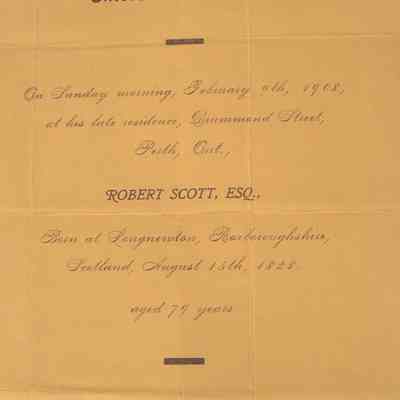 On Sunday morning, February 9th, 1908,
at his late residence, Drummond Street,
Perth, Ont.,
ROBERT SCOTT, ESQ.,
Born at Longnewton, Roxboroughshire,
Scotland, August 15th, 1828.
aged 79 years